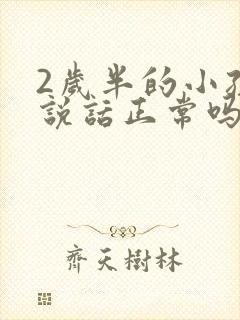 2歲半的小
說話正常吗
齊天樹林